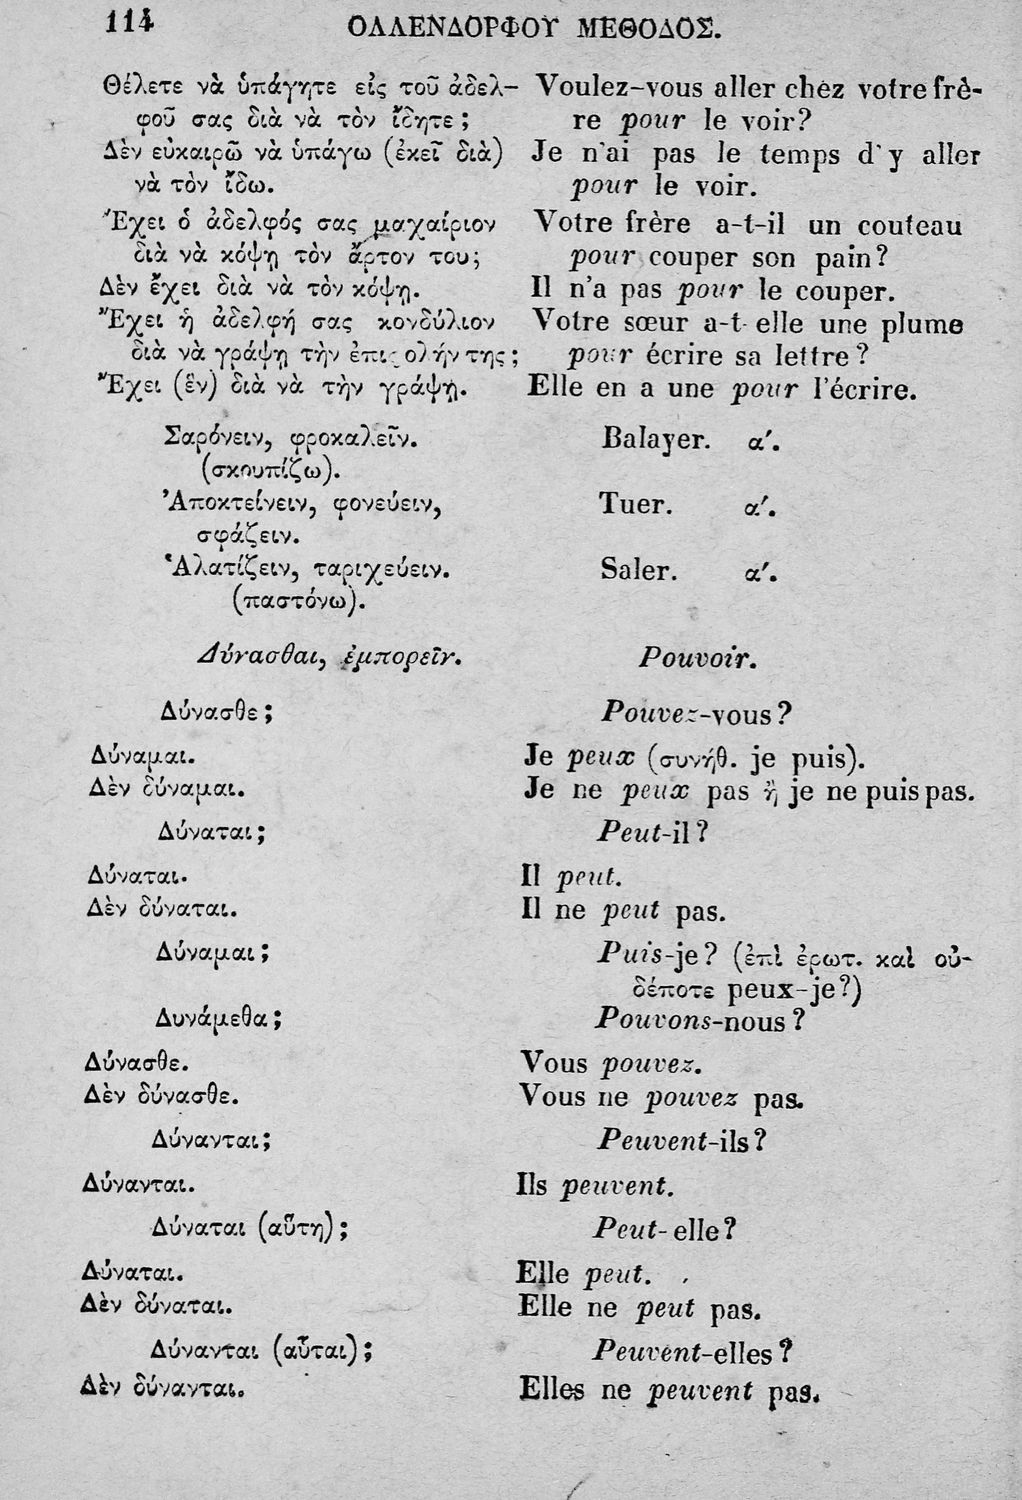 114 ΟΛΛΕΝΔΟΡΦΟΥ ΜΕΘΟΔΟΣ.
Θέλετε νὰ ὑπάγητε εἰς τοῦ ἀδελ- Voulez-vous aller chez votre frè-
φοῦ σας διὰ νὰ τὸν ἴδητε; re pour le voir?
Δὲν εὐκαιρῶ νὰ ὑπάγω (ἐκεῖ διὰ) Je n'ai pas le temps d'y aller
νὰ τὸν ἴδω. pour le voir.
Ἔχει ὁ ἀδελφός σας μαχαίριον Votre frère a-t-il un couteau
διὰ νὰ κόψῃ τὸν ἄρτον του; pour couper son pain?
Δὲν ἔχει διὰ νὰ τὸν κόψῃ. Il n'a pas pour le couper.
Ἔχει ἡ ἀδελφή σας κονδύλιον Votre sœur a-t-elle une plume
διὰ νὰ γράψῃ τὴν ἐπιϛολήν της; pour écrire sa lettre?
Ἔχει (ἓν) διὰ νὰ τὴν γράψῃ. Elle en a une pour l'écrire.
Σαρόνειν, φροκαλεῖν. Balayer. α΄.
(σκουπίζω).
Ἀποκτείνειν, φονεύειν, Tuer. α΄.
σφάζειν.
Ἁλατίζειν, ταριχεύειν. Saler. α΄.
(παστόνω).
Δύνασθαι, ἐμπορεῖν. Pouvoir.
Δύνασθε; Pouvez-vous?
Δύναμαι. Je peux (συνήθ. je puis).
Δὲν δύναμαι. Je ne peux pas ἢ je ne puis pas.
Δύναται; Peut-il?
Δύναται. Il peut.
Δὲν δύναται. Il ne peut pas.
Δύναμαι; Puis-je? (ἐπὶ ἐρωτ. καὶ οὐ-
δέποτε peux-je?)
Δυνάμεθα; Pouvons-nous?
Δύνασθε. Vous pouvez.
Δὲν δύνασθε. Vous ne pouvez pas.
Δύνανται; Peuvent-ils?
Δύνανται. Ils peuvent.
Δύναται (αὕτη); Peut-elle?
Δύναται. Elle peut.
Δὲν δύναται. Elle ne peut pas.
Δύνανται (αὗται); Peuvent-elles?
Δὲν δύνανται. Elles ne peuvent pas.